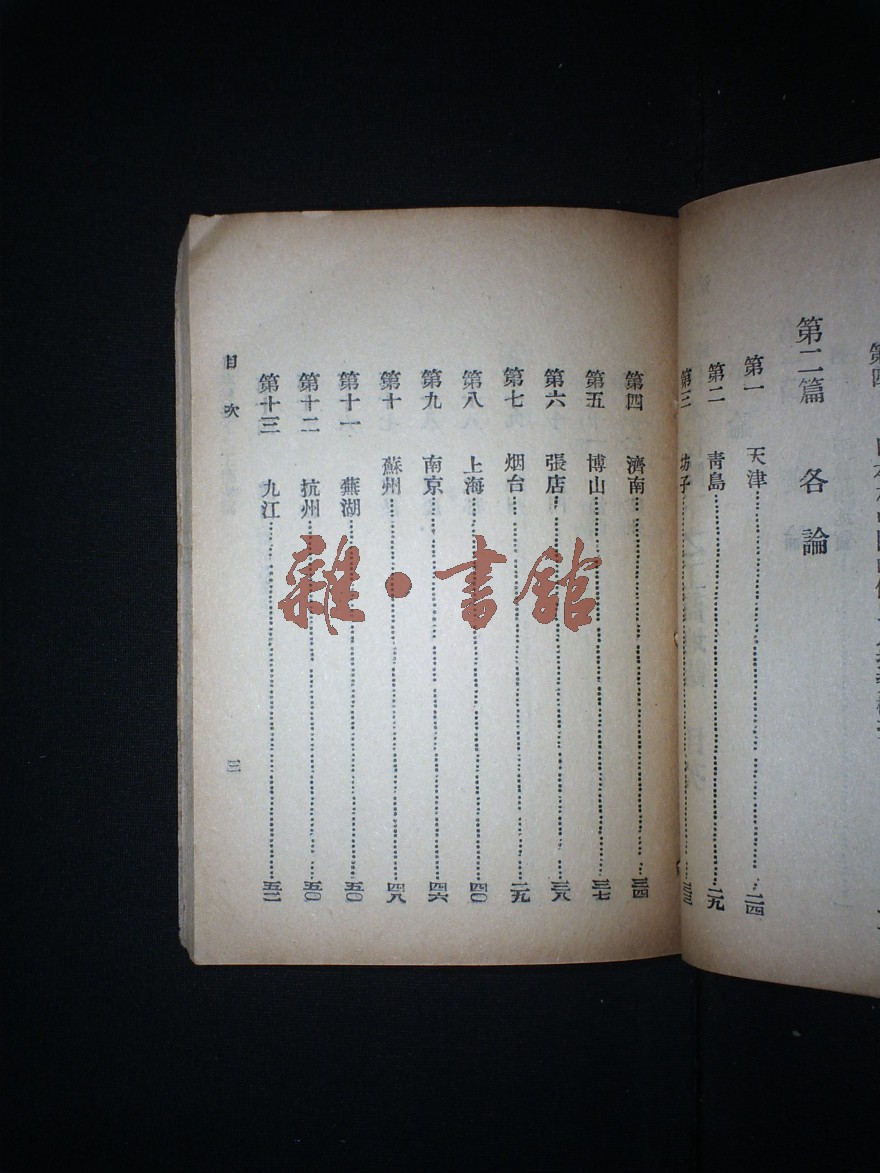 第二篇 各論
第一 天津 二四
第二 青島 二九
第三 坊子
第四 濟南 三四
第五 博山 三七
第六 張店 三八
第七 烟台 二九
第八 上海 四〇
第九 南京 四六
第十 蘇州 四八
第十一 蕪湖 五〇
第十二 杭州 五〇
第十三 九江 五二
目次 三
雜·書館